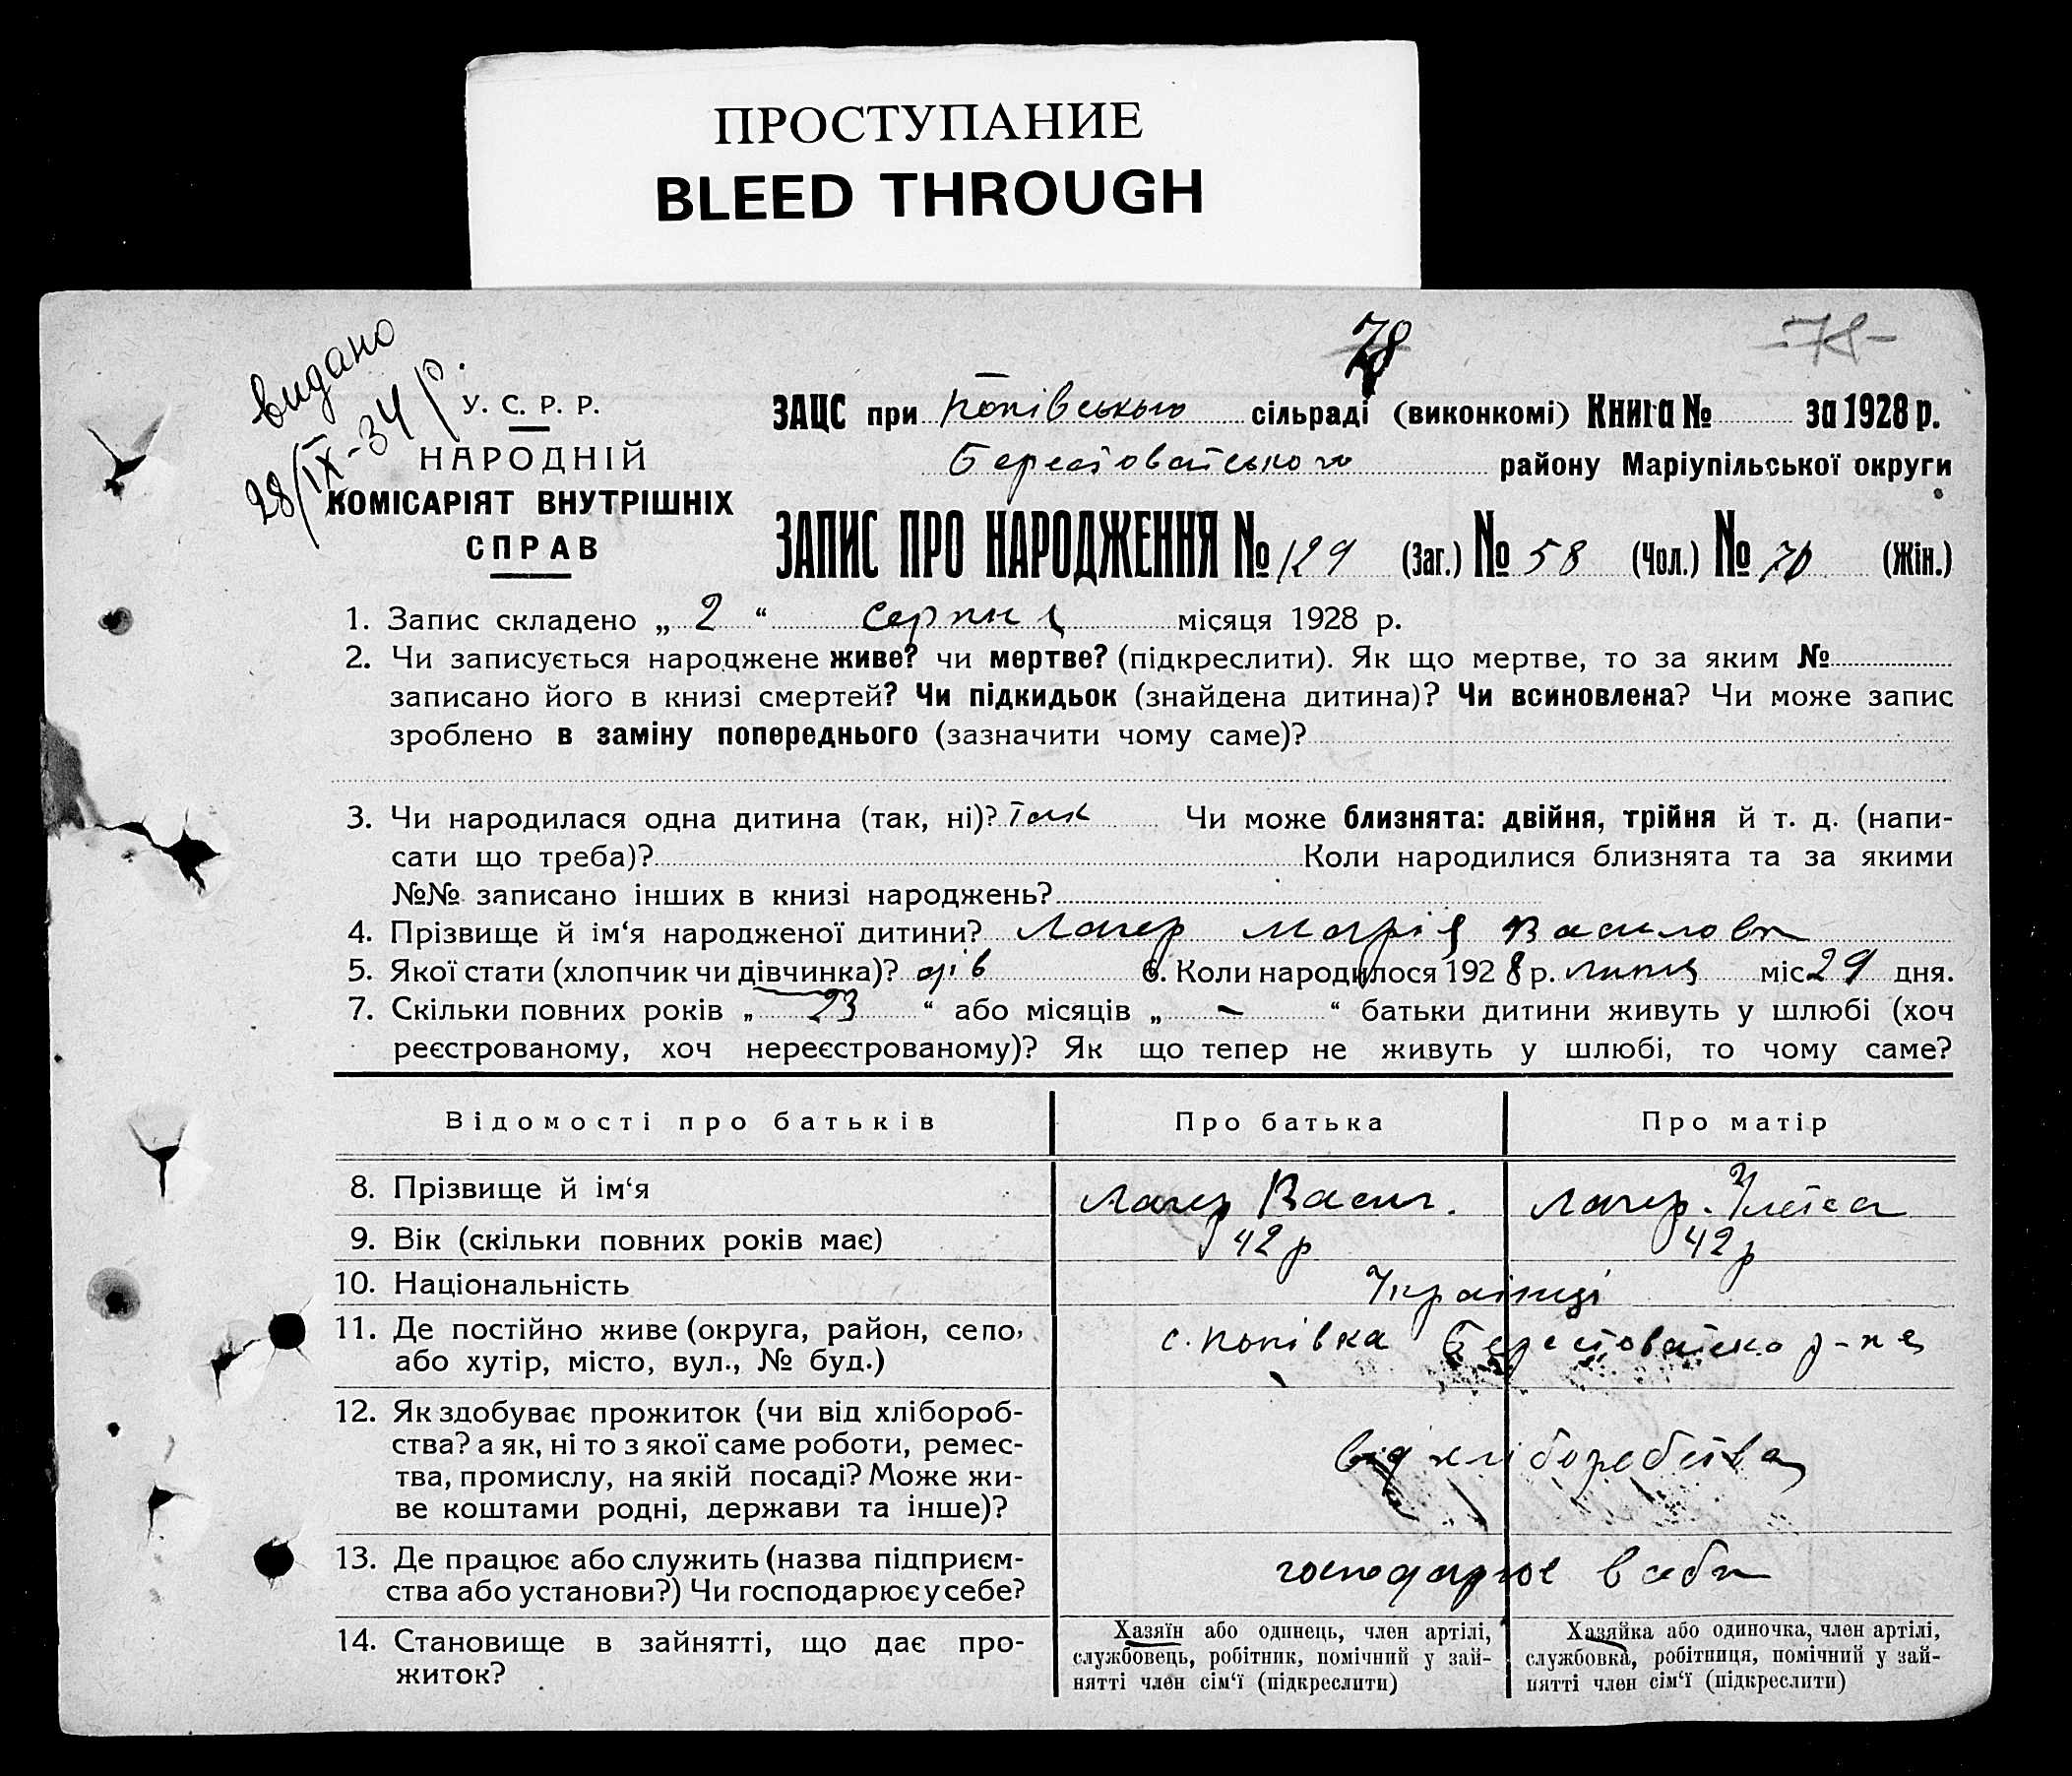 ПРОСТУПАНИЕ
BLEED THROUGH
78
-78-
видано
28/IX-34 р.
У. С. Р. Р.
НАРОДНІЙ
КОМІСАРІЯТ ВНУТРІШНІХ
СПРАВ
ЗАЦС при Попівського сільраді (виконкомі) Книга № за 1928 р.
Берестоватського району Маріупільської округи
ЗАПИС ПРО НАРОДЖЕННЯ № 129 (Заг.) № 58 (Чол.) № 70 (Жін.)
1. Запис складено „ 2 “ серпня місяця 1928 р.
2. Чи записується народжене живе? чи мертве? (підкреслити). Як що мертве, то за яким №
записано його в книзі смертей? Чи підкидьок (знайдена дитина)? Чи всиновлена? Чи може запис
зроблено в заміну попереднього (зазначити чому саме)?
3. Чи народилася одна дитина (так, ні)? Так Чи може близнята: двійня, трійня й т. д. (напи-
сати що треба)? Коли народилися близнята та за якими
№№ записано інших в книзі народжень?
4. Прізвище й ім‘я народженої дитини? Лагер Марія Василовн
5. Якої стати (хлопчик чи дівчинка)? дів 6. Коли народилося 1928 р. липня міс 29 дня.
7. Скільки повних років „ 23 “ або місяців „ – “ батьки дитини живуть у шлюбі (хоч
реєстрованому, хоч нереєстрованому)? Як що тепер не живуть у шлюбі, то чому саме?
Відомості про батьків Про батька Про матір
8. Прізвище й ім‘я Лагер Васил. Лагер.
9. Вік (скільки повних років має) 42 р 42 р
10. Національність Українці
11. Де постійно живе (округа, район, село,
або хутір, місто, вул., № буд.) с. Попівка Берестоватско р-на
12. Як здобуває прожиток (чи від хлібороб-
ства? а як, ні то з якої саме роботи, ремес-
тва, промислу, на якій посаді? Може жи-
ве коштами родні, держави та інше)? від хліборобства
13. Де працює або служить (назва підприєм-
ства або установи?) Чи господарює у себе? господарює в себе
14. Становище в зайнятті, що дає про-
житок?
Хазяїн або одинець, член артілі,
службовець, робітник, помічний у зай-
нятті член сім‘ї (підкреслити)
Хазяйка або одиночка, член артілі,
службовка, робітниця, помічний у зай-
нятті член сім‘ї (підкреслити)